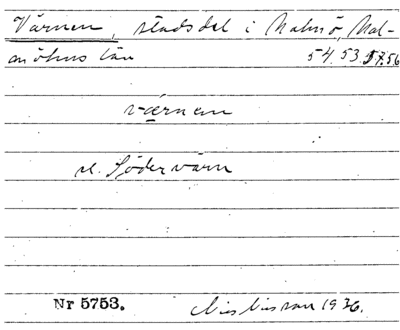 Värnen, stadsdel i Malmö, Mal-
möhus län 54.53.57.56
værnen
el. Södervärn
Nr 5753. 1936.